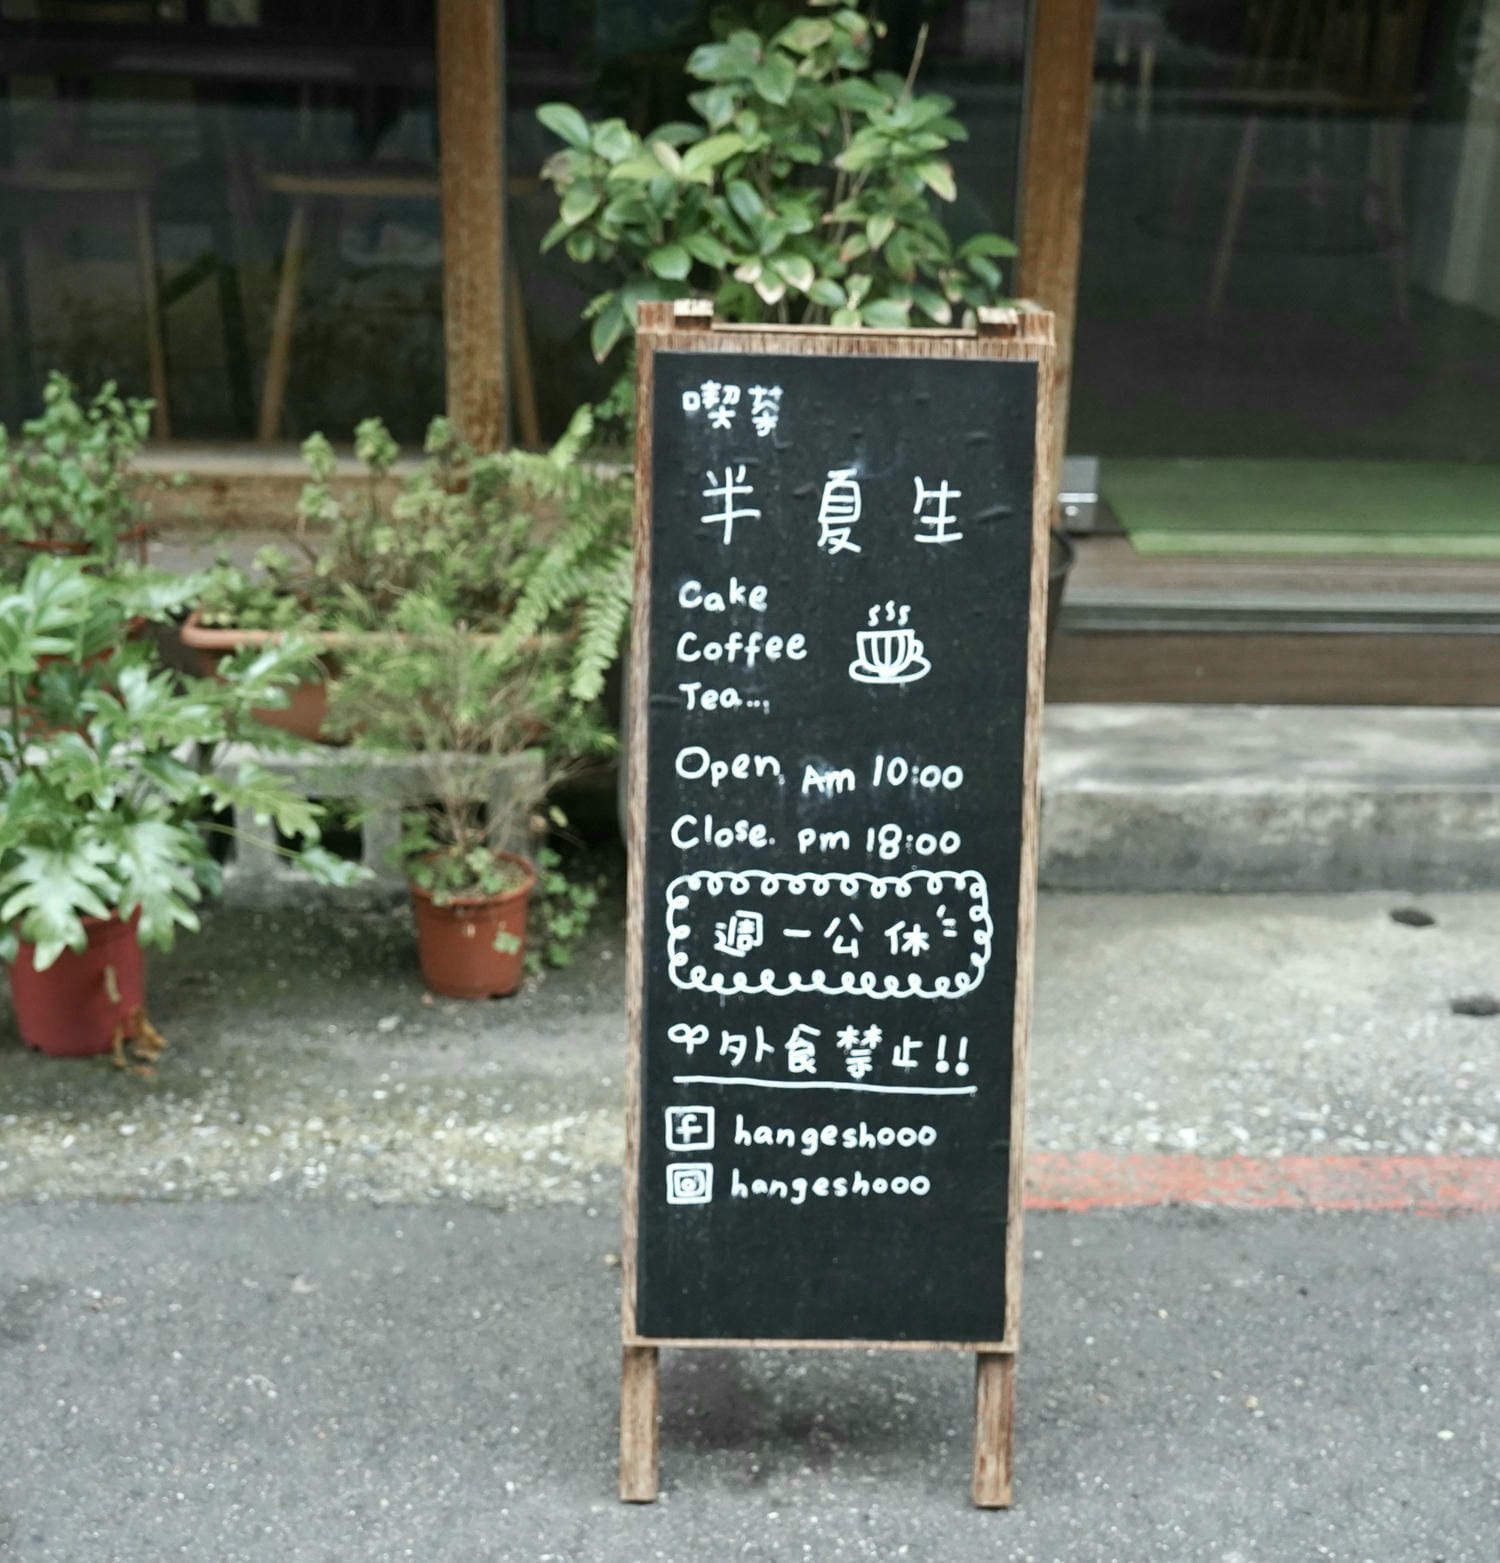 喫茶
半夏生
Cake
Coffee
Tea...
Open. Am 10:00
Close. pm 18:00
週一公休
外食禁止!!
hangeshooo
hangeshooo